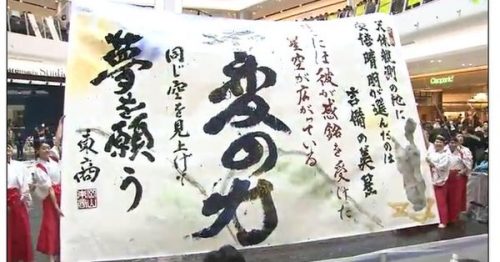 天体観測の地に
安倍晴明が選んだのは
吉備の美星
には彼が感銘を受けた
星空が広がっている
変の力
同じ空を見上げて
夢を願う
東商
Studio